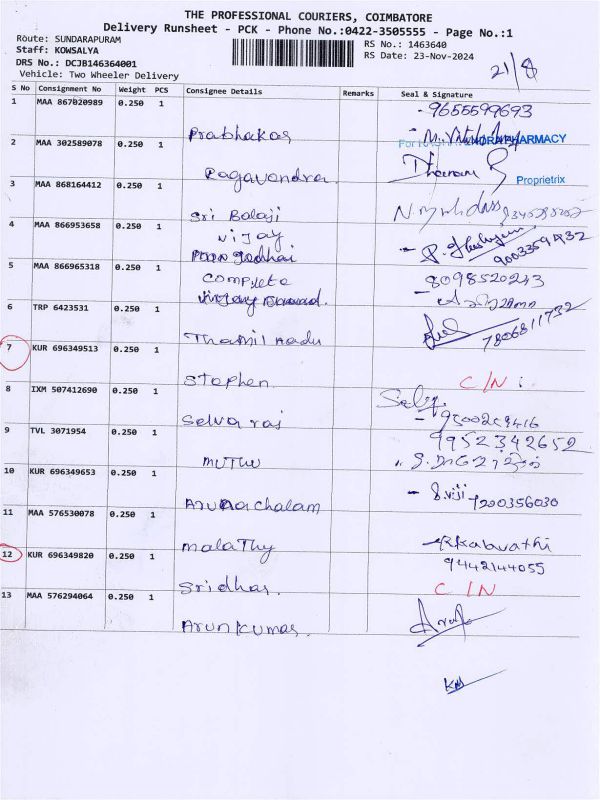 THE PROFESSIONAL COURIERS, COIMBATORE
Delivery Runsheet - PCK - Phone No.:0422-3505555 - Page No.:1
Route: SUNDARAPURAM
Staff: KOWSALYA
RS No.: 1463640
DRS No.: DCJB146364001
RS Date: 23-Nov-2024
Vehicle: Two Wheeler Delivery
21/8
S No Consignment No Weight PCS Consignee Details Remarks Seal & Signature
1 MAA 867020989 0.250 1
- 9655599693
Prabhakar
PHARMACY
2 MAA 302589078 0.250 1
Ragavendra.
Proprietrix
3 MAA 868164412 0.250 1
Sri Balaji
4 MAA 866953658 0.250 1
Vijay
9003359432
5 MAA 866965318 0.250 1
Complete
- 8098520243
6 TRP 6423531 0.250 1
Thamil nadu
7806811732
7 KUR 696349513 0.250 1
Stephen
C/N
8 IXM 507412690 0.250 1
Selvaraj
- 9500269416
9 TVL 3071954 0.250 1
9952342652
MUTHU
10 KUR 696349653 0.250 1
- S.viji 7200356030
Arunachalam
11 MAA 576530078 0.250 1
Malathy
12 KUR 696349820 0.250 1
9442144055
Sridhar
C/N
13 MAA 576294064 0.250 1
ArunKumar.